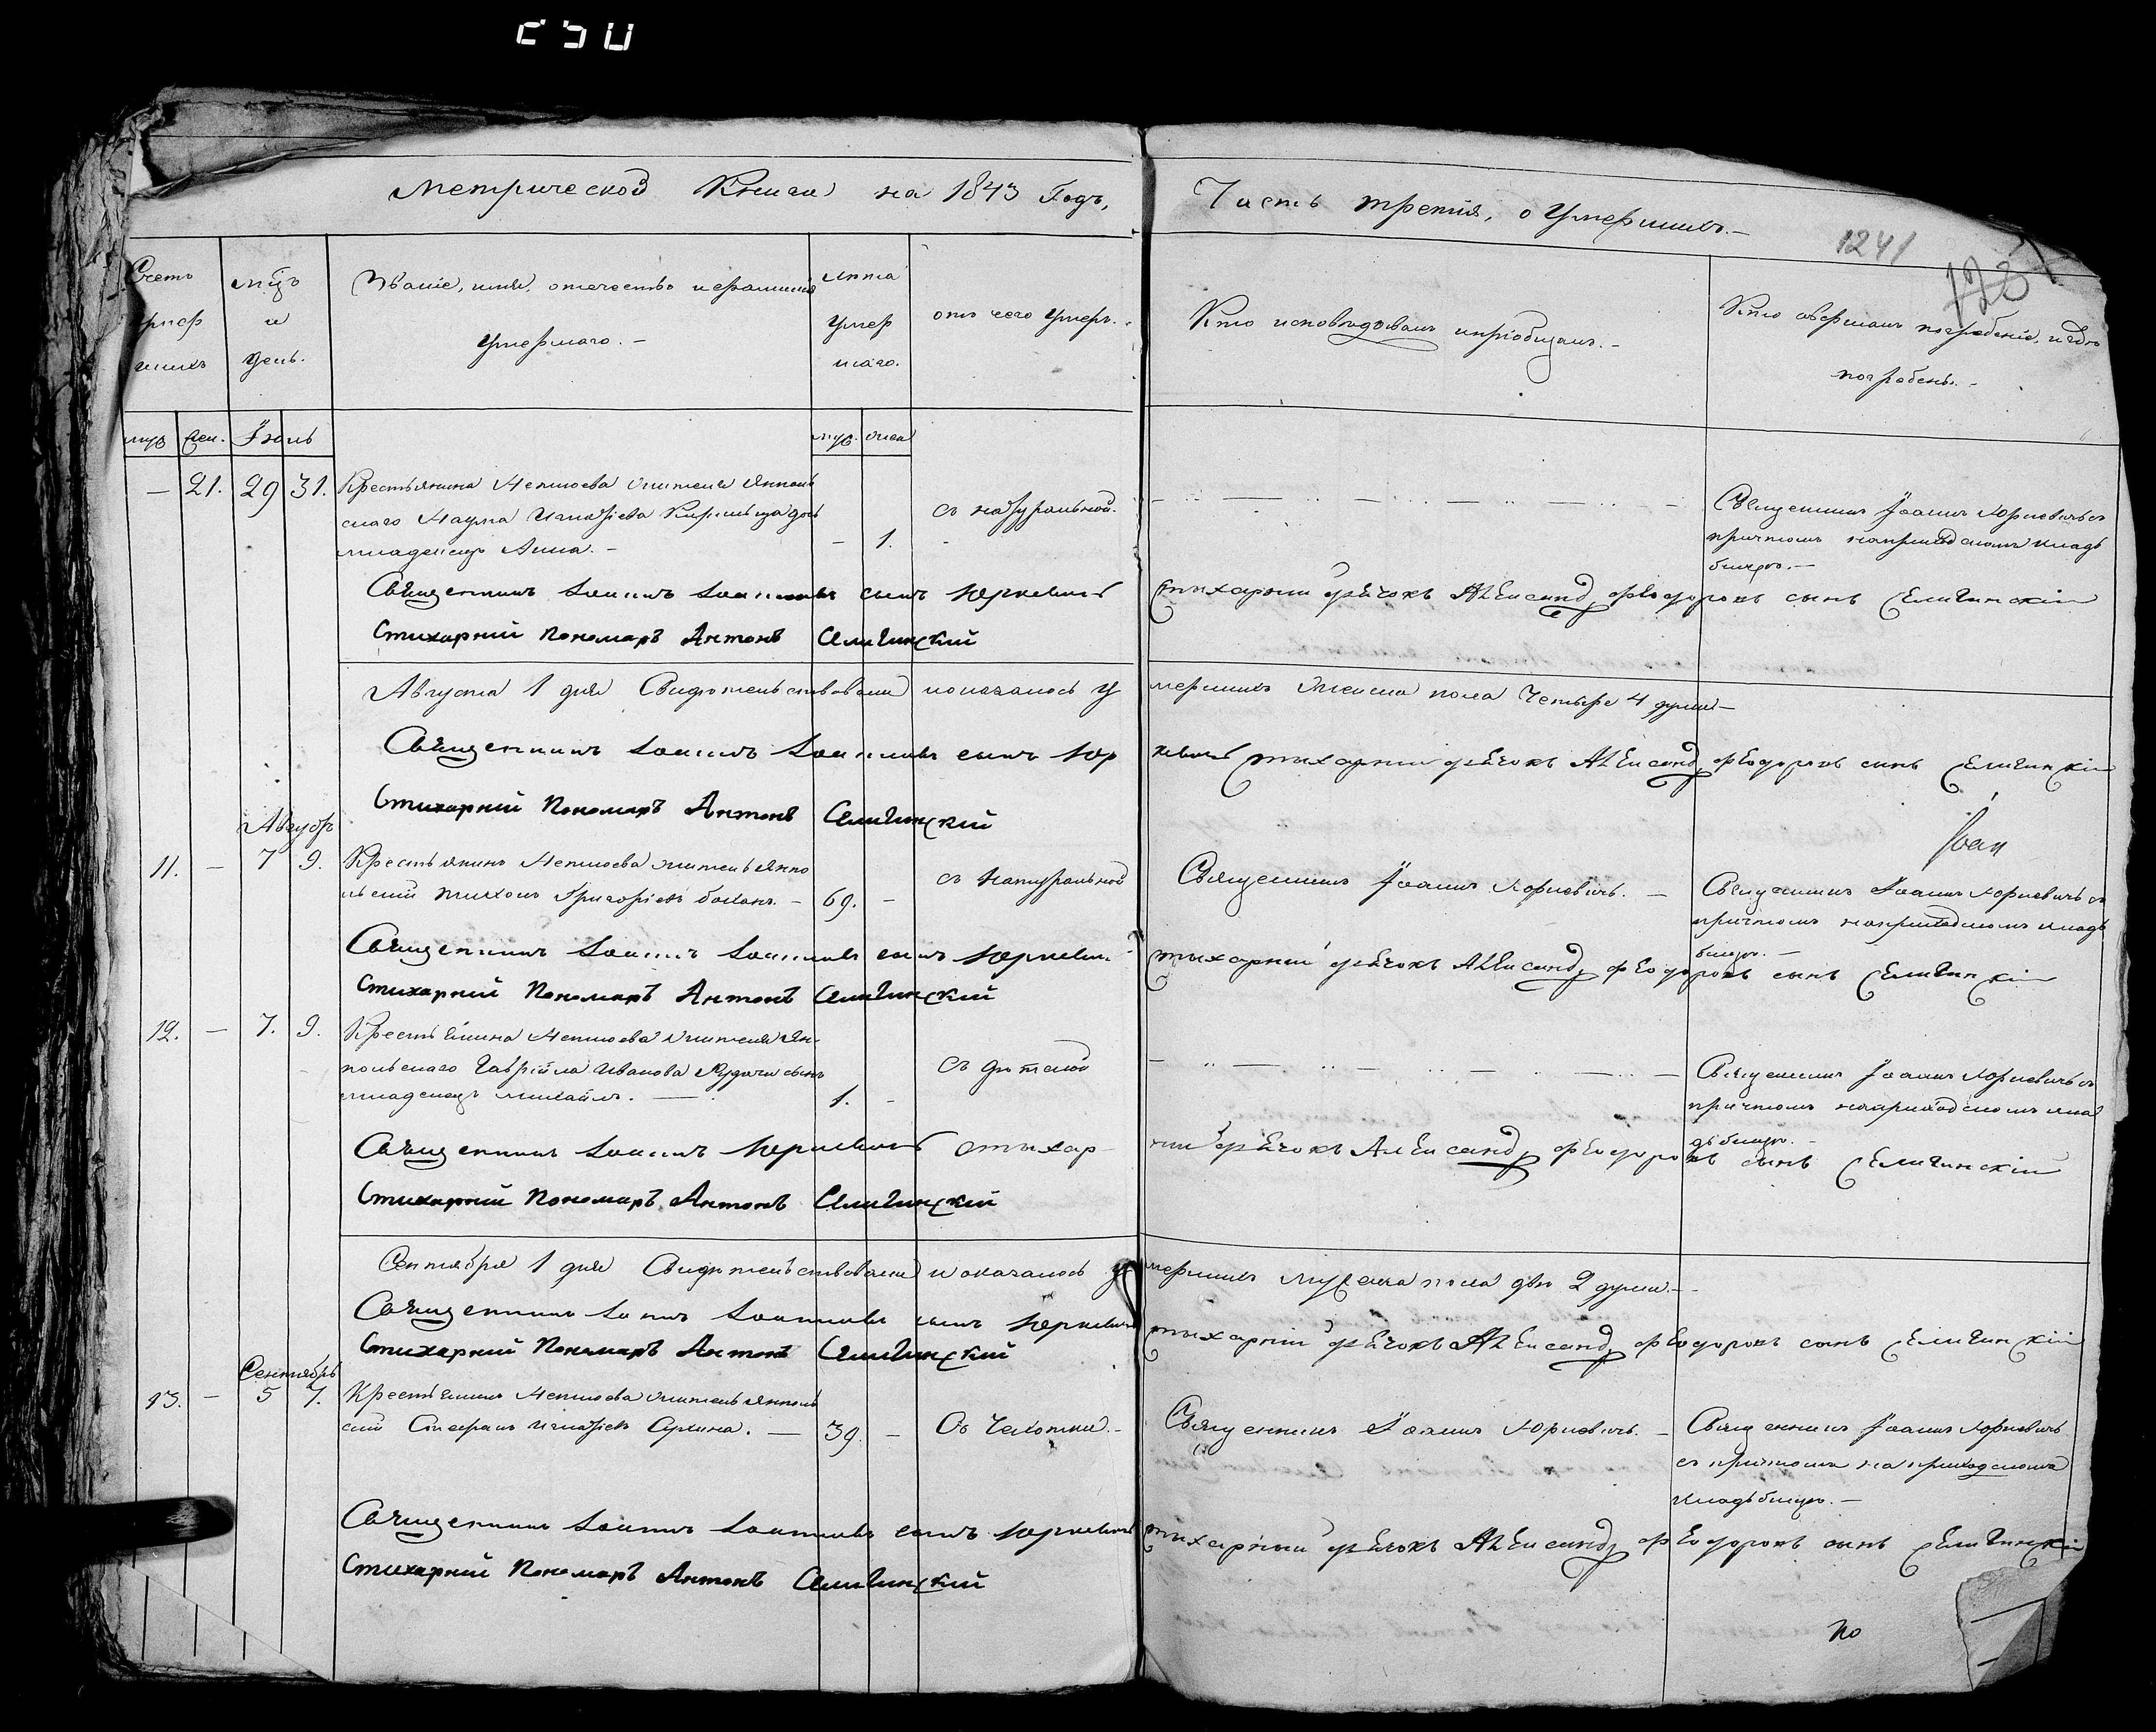 Метрической Книги на 1843 Годъ,
Часть третія, о Умершихъ.-
1241
Счетъ умершихъ
мцъ и день.
Званіе, имя, отечество и фамилія
умершаго.-
лѣта умершаго.
отъ чего умеръ.
Кто исповѣдовалъ и пріобщалъ.-
Кто совершалъ погребеніе, и гдѣ
погребенъ.-
муж жен. Іюль муж. жен
— 21. 29 31. Крестьянина
скаго Наума Игнатіева дочь
младенецъ Анна.-
- 1.
съ натуральной.
Священникъ Іоаннъ Юркевичъ съ
причтомъ на приходскомъ кладбищѣ.—
Священникъ Іоаннъ Іоанновъ сынъ Юркевичъ
Стихарный дьячокъ Александръ Феодоровъ сынъ Селигинскій
Стихарній Пономарь Антонъ Селигинскій
Августа 1 дня Свидѣтельствовали и оказалось умершихъ женска пола Четыре 4 души—
Священникъ Іоаннъ Іоанновъ сынъ Юркевичъ Стихарный дьячокъ Александръ Феодоровъ сынъ Селигинскій
Стихарній Пономарь Антонъ Селигинскій
Августъ
11. — 7 9. Крестьянинъ
Тихонъ Григоріевъ
69. -
съ натуральной
Священникъ Іоаннъ Юркевичъ.—
Священникъ Іоаннъ Юркевичъ съ
причтомъ на приходскомъ кладбищѣ.—
Священникъ Іоаннъ Іоанновъ сынъ Юркевичъ
Стихарный дьячокъ Александръ Феодоровъ сынъ Селигинскій
Стихарній Пономарь Антонъ Селигинскій
12. — 7. 9. Крестьянина
польскаго Гавріила Иванова сынъ
младенецъ Михаилъ.—
1. -
Священникъ Іоаннъ Юркевичъ съ
причтомъ на приходскомъ кладбищѣ.—
Священникъ Іоаннъ Юркевичъ Стихарный дьячокъ Александръ Феодоровъ сынъ Селигинскій
Стихарній Пономарь Антонъ Селигинскій
Сентября 1 дня Свидѣтельствовали и оказалось умершихъ мужеска пола двѣ 2 души.-
Священникъ Іоаннъ Іоанновъ сынъ Юркевичъ
Стихарный дьячокъ Александръ Феодоровъ сынъ Селигинскій
Стихарній Пономарь Антонъ Селигинскій
Сентябрь
13. — 5 7. Крестьянинъ
Стефанъ Игнатіевъ
39. -
Съ Чахотки.-
Священникъ Іоаннъ Юркевичъ.-
Священникъ Іоаннъ Юркевичъ
съ причтомъ на приходскомъ
кладбищѣ.—
Священникъ Іоаннъ Іоанновъ сынъ Юркевичъ
Стихарный дьячокъ Александръ Феодоровъ сынъ Селигинскій
Стихарній Пономарь Антонъ Селигинскій
По